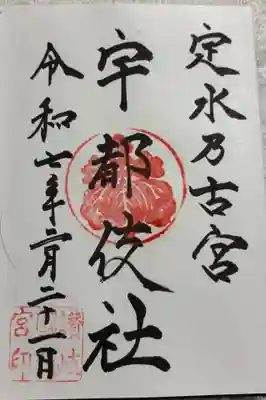 定水乃古宮
宇都伎社
令和七年二月二十一日
宮印